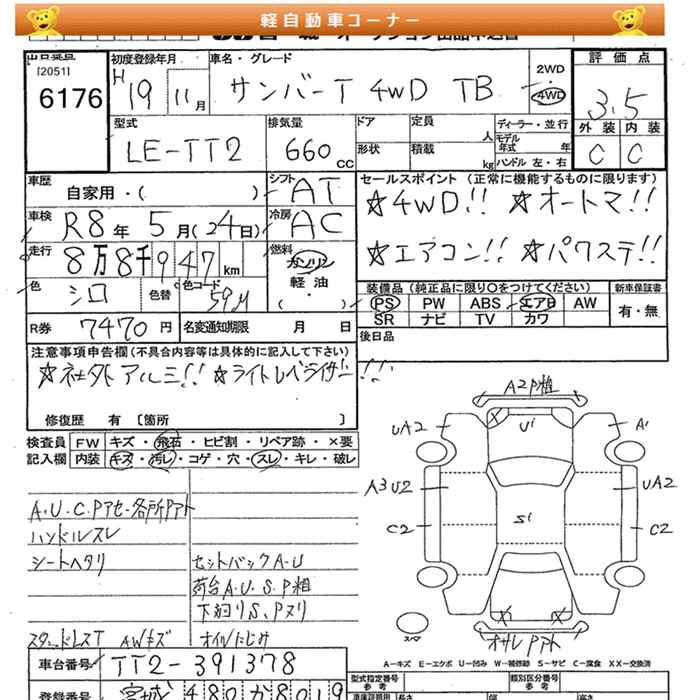 軽自動車コーナー
出品番号
[2051]
6176
初度登録年月
H 19 11月
車名・グレード
サンバーT 4WD TB
2WD
4WD
評価点
3.5
外装 内装
C C
型式
LE-TT2
排気量
660 CC
ドア
形状
定員 人
積載 kg
ディーラー・並行
モデル年式 年
ハンドル 左・右
車歴
自家用・( )
シフト
AT
車検
R8年 5月(24日)
冷房
AC
走行
8万8千947km
燃料
ガソリン
軽油
( )
色
シロ
色替
色コード
59M
R券 7470円
名変通知期限 月 日
セールスポイント(正常に機能するものに限ります)
☆4WD!! ☆オートマ!!
☆エアコン!! ☆パワステ!!
装備品(純正品に限り○をつけてください)
PS PW ABS エアB AW
SR ナビ TV カワ
新車保証書
有・無
後日品
注意事項申告欄(不具合内容等は具体的に記入して下さい)
☆社外アルミ!! ☆ライトレベライザー!!!
修復歴 有 [箇所 ]
検査員記入欄
FW キズ・飛石・ヒビ割・リペア跡・×要
内装 キズ・汚レ・コゲ・穴・スレ・キレ・破レ
A・U・C・Pアセ・各所Pアト
ハンドルスレ
シートヘタリ
セットバックA・U
荷台A・U・S・P粗
下廻りS、Pヌリ
スタッドレスT AWキズ オイルにじみ
A2P粗
UA2
U1
A1
A3U2
UA2
C2
S1
C2
スペア
オサレPアト
A－キズ E－エクボ U－凹み W－補修跡 S－サビ C－腐食 XX－交換済
車台番号
TT2-391378
宮城 480か8019
型式指定番号
参考
類別区分番号
参考
長さ
幅
高さ